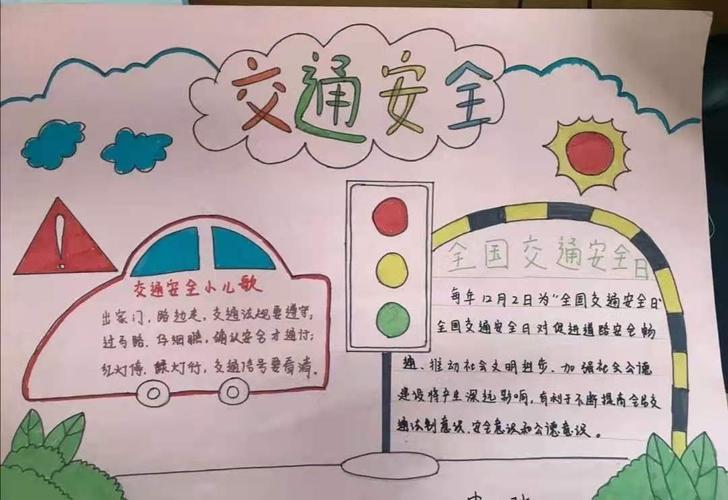 交通安全
交通安全小儿歌
出家门,路边走,交通法规要遵守,
过马路,仔细瞧,确认安全才通行;
红灯停,绿灯行,交通信号要看清。
全国交通安全日
每年12月2日为"全国交通安全日"
全国交通安全日对促进道路安全畅
通、推动社会文明进步、加强社会公德
建设将产生深远影响,有利于不断提高全民交
通法制意识、安全意识和公德意识。